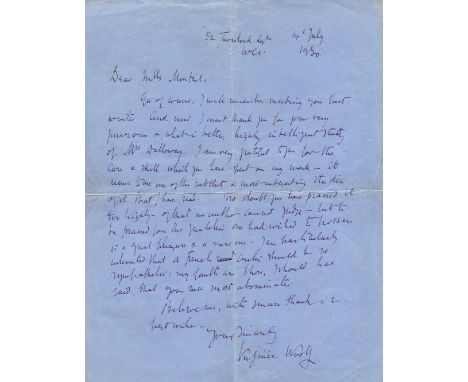 52 Tavistock Sqre 4th July
W.C.1. 1930.
Dear Mlle Monteil.
Yes of course, I well remember meeting you last
winter. And now I must thank you for your very
generous & what is better highly intelligent study
of Mrs Dalloway. I am very grateful to you for the
care & skill which you have spent on my work – it
seems to me one of the justest & most interesting studies
of it that I have read. No doubt you have praised it
too highly – of that an author cannot judge – but to
be praised for the qualities one had wished to possess
is a great pleasure & a rare one. I am particularly
interested that a French critic should be so
sympathetic: my faults are those, I should have
said, that your race most abominates.
Believe me, with sincere thanks &
best wishes –
Yours sincerely
Virginia Woolf